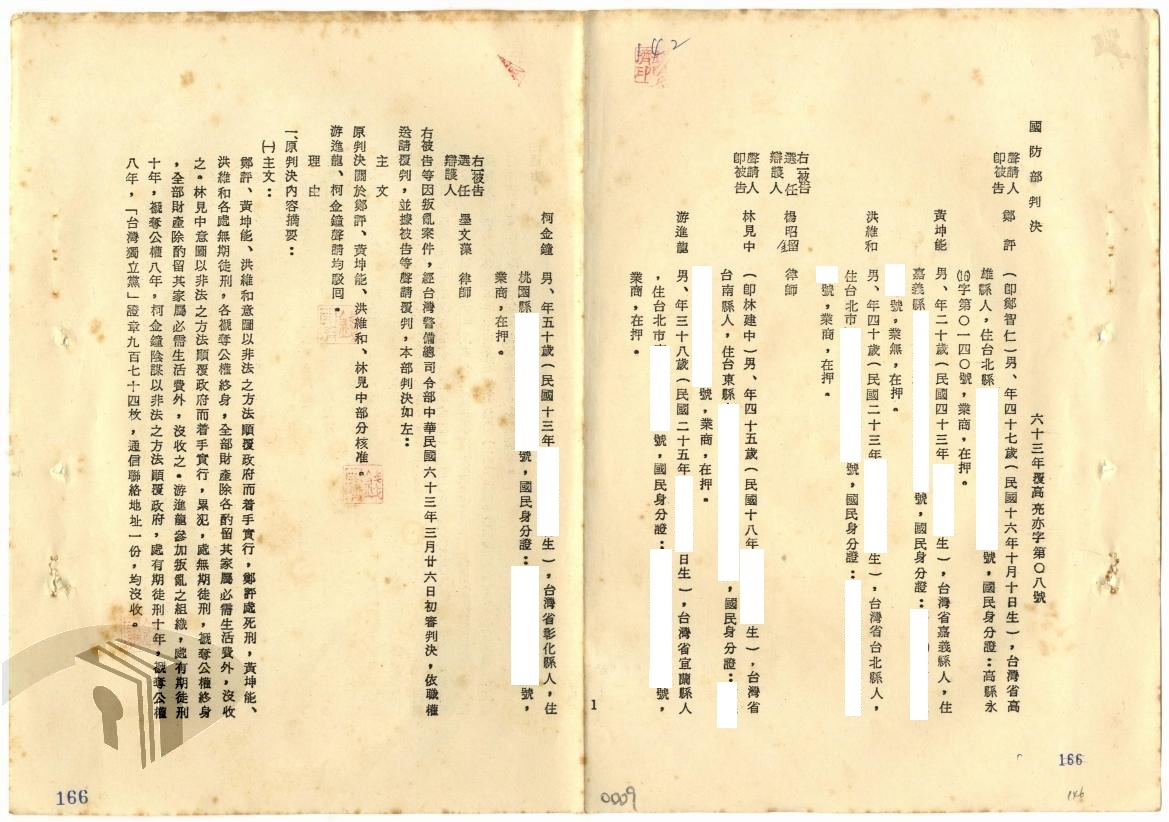 國防部判決
六十三年覆高亮亦字第〇八號
聲請人
即被告
鄭評
(即鄭智仁)男、年四十七歲(民國十六年十月十日生),台灣省高
雄縣人,住台北縣 號,國民身分證:高縣永
字第〇一四〇號,業商,在押。
黃坤能
男、年二十歲(民國四十三年 生),台灣省嘉義縣人,住
嘉義縣 號,國民身分證:
號,業無,在押。
洪維和
男、年四十歲(民國二十三年 生),台灣省台北縣人,
住台北市 號,國民身分證:
號,業商,在押。
右一被告
選任
辯護人
楊昭留
律師
聲請人
即被告
林見中
(即林建中)男、年四十五歲(民國十八年 生),台灣省
台南縣人,住台東縣 ,國民身分證:
號,業商,在押。
游進龍
男、年三十八歲(民國二十五年 日生),台灣省宜蘭縣人
,住台北市 號,國民身分證: 號,
業商,在押。
1
166
146
142
0009
柯金鐘
男、年五十歲(民國十三年 生),台灣省彰化縣人,住
桃園縣 號,國民身分證: 號,
業商,在押。
右被告
選任
辯護人
墨文藻
律師
右被告等因叛亂案件,經台灣警備總司令部中華民國六十三年三月廿六日初審判決,依職權
送請覆判,並據被告等聲請覆判,本部判決如左:
主文
原判決關於鄭評、黃坤能、洪維和、林見中部分核准。
游進龍、柯金鐘聲請均駁回。
理由
一、原判決內容摘要:
㈠主文:
鄭評、黃坤能、洪維和意圖以非法之方法顛覆政府而着手實行,鄭評處死刑,黃坤能、
洪維和各處無期徒刑,各褫奪公權終身,全部財產除各酌留其家屬必需生活費外,沒收
之。林見中意圖以非法之方法顛覆政府而着手實行,累犯,處無期徒刑,褫奪公權終身
,全部財產除酌留其家屬必需生活費外,沒收之。游進龍參加叛亂之組織,處有期徒刑
十年,褫奪公權八年,柯金鐘陰謀以非法之方法顛覆政府,處有期徒刑十年,褫奪公權
八年,「台灣獨立黨」證章九百七十四枚,通信聯絡地址一份,均沒收。
166